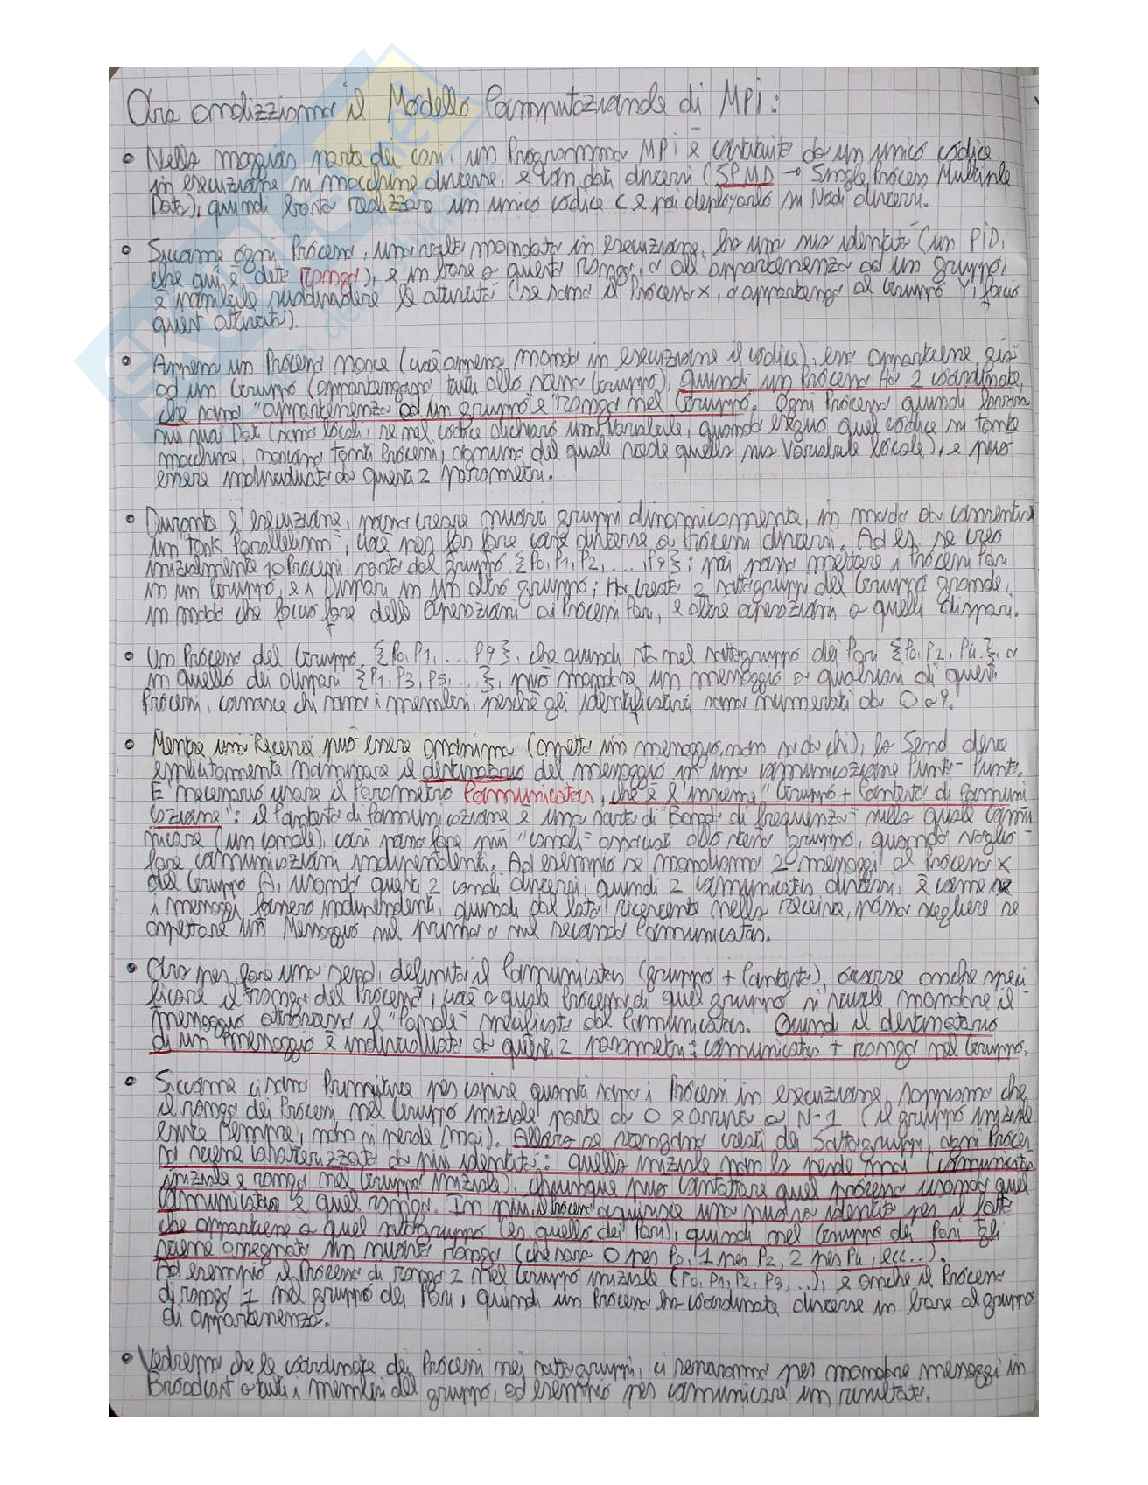 Ora analizziamo il Modello Computazionale di MPI:
• Nella maggior parte dei casi, un Programma MPI è costituito da un unico codice
in esecuzione su macchine diverse, e con dati diversi (SPMD → Single Process Multiple
Data), quindi basta realizzare un unico codice C e poi deployarlo su Nodi diversi.
• Siccome ogni Processo, una volta mandato in esecuzione, ha una sua identità (un PID,
che qui è detto rango), e in base a questo Rango, o all'appartenenza ad un gruppo,
è possibile suddividere le attività (se sono il Processo X, o appartengo al Gruppo Y, faccio
quest'attività).
• Appena un Processo nasce (cioè appena mando in esecuzione il codice), esso appartiene già
ad un Gruppo (appartengono tutti allo stesso Gruppo), quindi un Processo ha 2 coordinate,
che sono "appartenenza ad un gruppo e Rango nel Gruppo. Ogni Processo quindi lavora
sui suoi Dati (sono locali, se nel codice dichiaro una Variabile, quando eseguo quel codice su tante
macchine, nascono tanti Processi, ognuno dei quali vede quella sua Variabile locale), e può
essere individuato da questi 2 parametri.
• Durante l'esecuzione, posso creare nuovi gruppi dinamicamente, in modo da consentire
un Task Parallelism, cioè per far fare cose diverse a Processi diversi. Ad es. se creo
inizialmente 10 Processi parte del gruppo {P0, P1, P2, ..., P9}; poi posso mettere i Processi Pari
in un Gruppo, e i Dispari in un altro gruppo; Ho creato 2 sottogruppi del Gruppo grande,
in modo che faccio fare delle operazioni ai Processi Pari, e altre operazioni a quelli dispari.
• Un Processo del Gruppo {P0, P1, ... P9}, che quindi sta nel sottogruppo dei Pari {P0, P2, P4..}, o
in quello dei dispari {P1, P3, P5, ...}, può mandare un messaggio a qualsiasi di questi
Processi, conosce chi sono i membri perchè gli identificativi sono numerati da 0 a 9.
• Mentre una Receive può essere anonima (aspetta un messaggio, non si sa da chi), la Send deve
esplicitamente nominare il destinatario del messaggio in una comunicazione Punto-Punto.
È necessario usare il Parametro Communicator, che è l'insieme "Gruppo + Contesto di Comuni
cazione": il Contesto di Comunicazione è una sorta di Banda di frequenza nella quale comu
nicare (un canale), così posso fare più "canali" associati allo stesso gruppo, quando voglio
fare comunicazioni indipendenti. Ad esempio se mandiamo 2 messaggi al Processo X
del Gruppo G, usando questi 2 canali diversi, quindi 2 communicator diversi, è come se
i messaggi fossero indipendenti, quindi dal lato ricevente nella Receive, posso scegliere se
aspettare un Messaggio sul primo o sul secondo Communicator.
• Ora per fare una send, definito il Communicator (gruppo + Contesto), occorre anche speci
ficare il rango del Processo, cioè a quale Processo di quel gruppo si vuole mandare il
messaggio attraverso il "Canale" specificato dal Communicator. Quindi il destinatario
di un messaggio è individuato da questi 2 parametri: communicator + rango nel Gruppo.
• Siccome ci sono Primitive per capire quanti sono i Processi in esecuzione, sappiamo che
il rango dei Processi nel Gruppo iniziale parte da 0 e arriva a N-1 (il gruppo iniziale
esiste sempre, non si perde mai). Allora se vengono creati dei Sottogruppi, ogni Proces
so viene caratterizzato da più identità: quella iniziale non la perde mai (communicator
iniziale e rango nel Gruppo iniziale), chiunque può contattare quel processo usando quel
communicator e quel rango. In più il Processo acquisisce una nuova identità per il fatto
che appartiene a quel sottogruppo (es quello dei Pari), quindi nel Gruppo dei Pari gli
viene assegnato un nuovo rango (che sarà 0 per P0, 1 per P2, 2 per P4, ecc...).
Ad esempio il Processo di Rango 2 nel Gruppo iniziale (P0, P1, P2, P3, ...), è anche il Processo
di rango 1 nel gruppo dei Pari, quindi un Processo ha coordinate diverse in base al gruppo
di appartenenza.
• Vedremo che le coordinate dei Processi nei sottogruppi, ci serviranno per mandare messaggi in
Broadcast a tutti i membri del gruppo, ad esempio per comunicare un risultato.